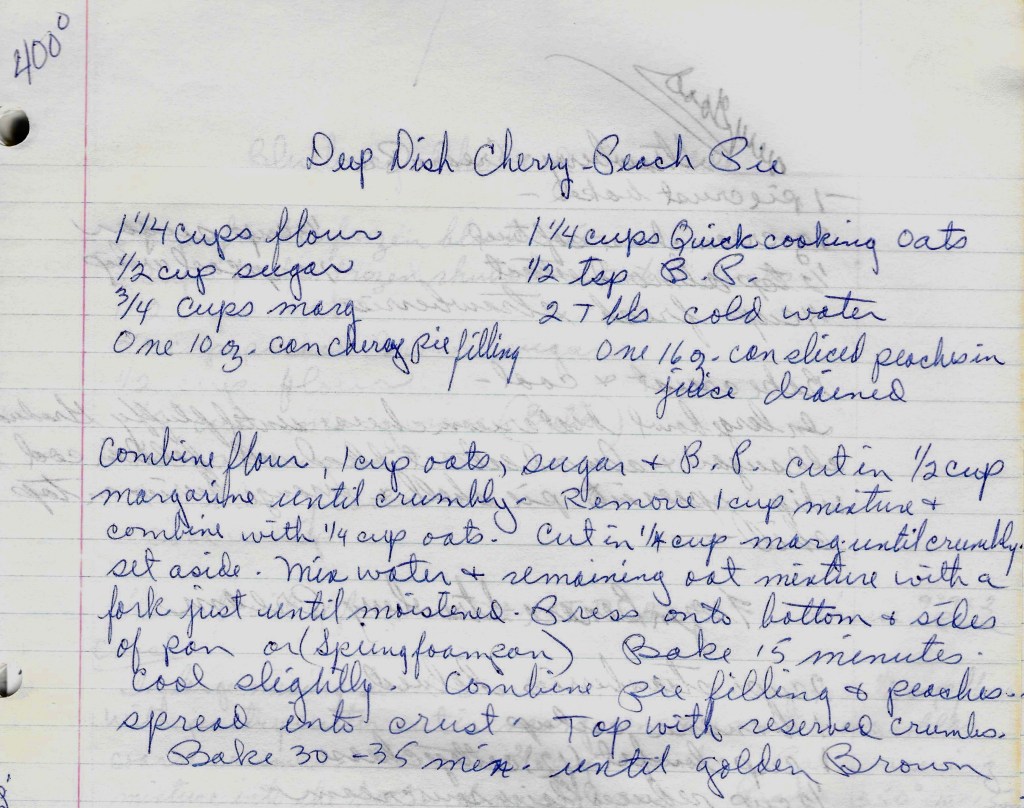 400°
Deep Dish Cherry-Peach Pie
1 1/4 cups flour 1 1/4 cups Quick cooking oats
1/2 cup sugar 1/2 tsp B.P.
3/4 cups marg 2 Tbls cold water
One 10 oz. can cherry pie filling One 16 oz. can sliced peaches in
juice drained
Combine flour, 1 cup oats, sugar + B.P. cut in 1/2 cup
margarine until crumbly. Remove 1 cup mixture +
combine with 1/4 cup oats. Cut in 1/4 cup marg. until crumbly.
set aside. Mix water + remaining oat mixture with a
fork just until moistened. Press onto bottom + sides
of pan or (Springfoampan) Bake 15 minutes.
Cool slightly. Combine pie filling + peaches.
spread into crust. Top with reserved crumbs.
Bake 30-35 min. until golden Brown